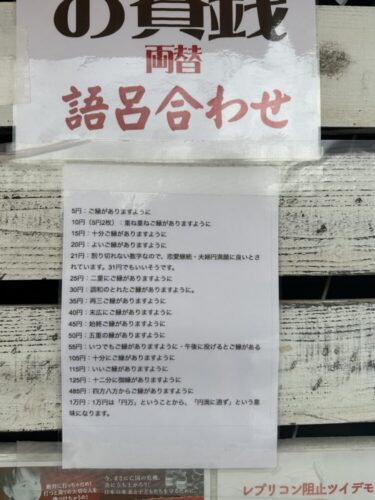 お賽銭
両替
語呂合わせ
5円：ご縁がありますように
10円（5円2枚）：重ね重ねご縁がありますように
15円：十分ご縁がありますように
20円：よいご縁がありますように
21円：割り切れない数字なので、恋愛継続・夫婦円満願に良いとさ
れています。31円でもいいそうです。
25円：二重にご縁がありますように
30円：調和のとれたご縁がありますように。
35円：再三ご縁がありますように
40円：末広にご縁がありますように
45円：始終ご縁がありますように
50円：五重の縁がありますように
55円：いつでもご縁がありますように・午後に投げるとご縁がある
105円：十分にご縁がありますように
115円：いいご縁がありますように
125円：十二分に御縁がありますように
485円：四方八方からご縁がありますように
1万円：1万円は「円万」ということから、「円満に通ず」という意
味になります。
レプリコン阻止ツイデモ